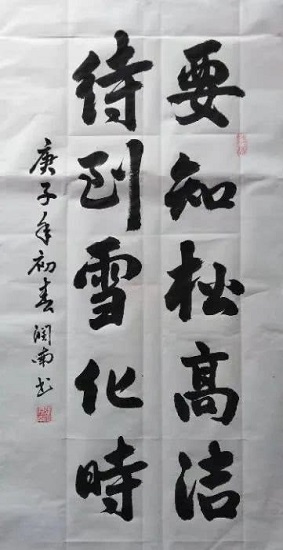 要知松高洁
待到雪化時
庚子年初春润南书